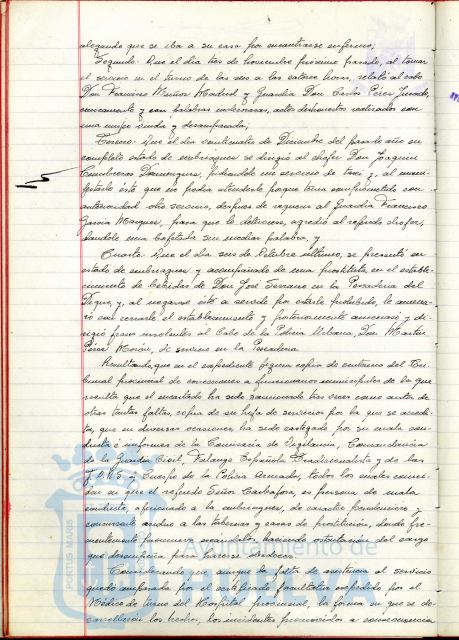 alegando que se iba a su casa por encontrarse enfermo;
Segundo: Que el día tres de Noviembre próximo pasado, al tomar
el servicio en el turno de las seis a las catorce horas, relató al cabo
Don Francisco Muñoz Madrid y Guardia Don Carlos Pérez Jurado,
cínicamente y con palabras indecorosas, actos deshonestos realizados con
una mujer viuda y desamparada;
Tercero: Que el día veinticuatro de Diciembre del pasado año en
completo estado de embriaguez se dirigió al chofer Don Joaquín
Cumbreras Domínguez, pidiéndole un servicio de taxi y, al mani-
festarle éste que no podía atenderle porque tenía comprometido con
anterioridad otro servicio, después de requerir al Guardia Francisco
García Márquez, para que le detuviese, agredió al referido chofer,
dándole una bofetada sin mediar palabra, y
Cuarto: Que el día seis de Octubre último, se presentó en
estado de embriaguez y acompañado de una prostituta, en el estable-
cimiento de bebidas de Don José Serrano en la Pescadería del
Dique, y, al negarse éste a servirle por estarle prohibido, le amena-
zó con cerrarle el establecimiento y posteriormente amenazó y di-
rigió frases insolentes al Cabo de la Policía Urbana, Don Martín
Pérez Morón, de servicio en la Pescadería.
Resultando, que en el expediente figura copia de sentencia del Tri-
bunal provincial de correcciones a funcionarios municipales de la que
resulta que el encartado ha sido sancionado tres veces como autor de
otras tantas faltas, copia de su hoja de servicios por la que se acredi-
ta, que en diversas ocasiones ha sido castigado por su mala con-
ducta é informes de la Comisaría de Vigilancia, Comandancia
de la Guardia Civil, Falange Española Tradicionalista y de las
J.O.N.S. y Cuerpo de la Policía Armada, todos los cuales coinci-
den en que el referido Señor Carbajosa, es persona de mala
conducta, aficionado a la embriaguez, de carácter pendenciero y
concurrente asiduo a las tabernas y casas de prostitución, donde fre-
cuentemente promueve escándalos, haciendo ostentación del cargo
que desempeña para hacerse obedecer.
Considerando que aunque la falta de asistencia al servicio
quedó amparada por el certificado facultativo expedido por el
Médico de turno del Hospital provincial, la forma en que se de-
sarrollaron los hechos, los incidentes promovidos a consecuencia
Ayuntamiento de
HUELVA
PORTUS MARIS